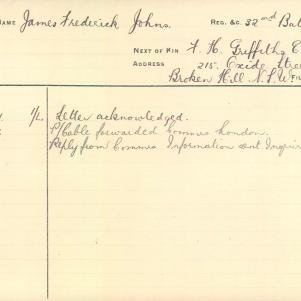 NAME James Frederick Johns. REG. &C. 32nd
NEXT OF KIN F. H. Griffiths
ADDRESS 215. Oxide
Broken Hill. N.S.W.
1/L. Letter acknowledged.
P/Cable forwarded Commrs London.
Reply from Commrs Information sent